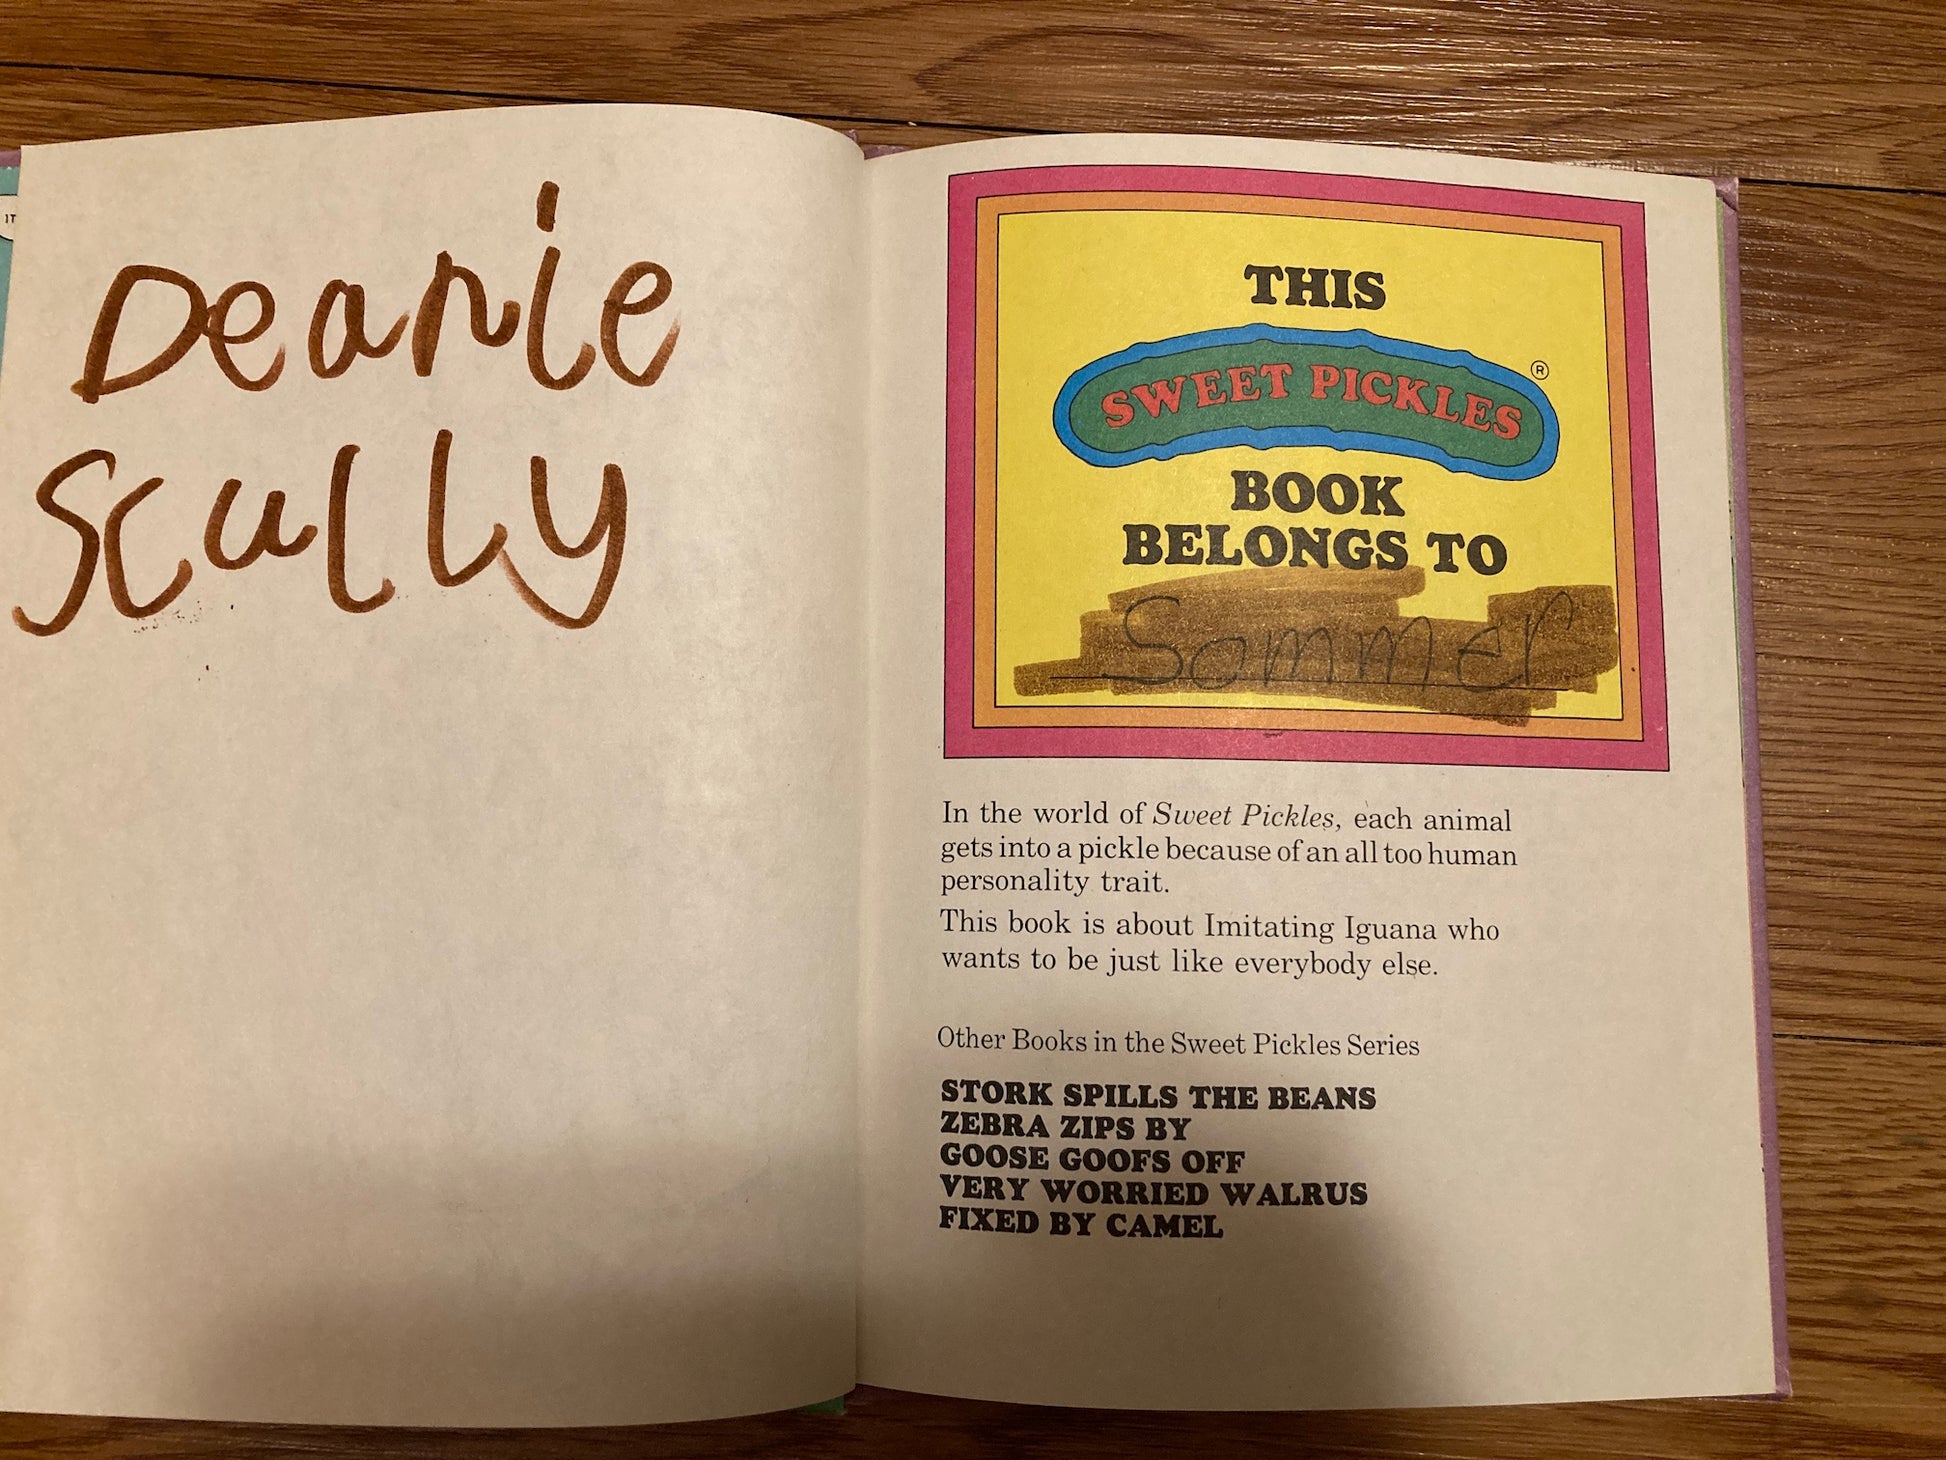 IT
Deanie
Scully
THIS
SWEET PICKLES ®
BOOK
BELONGS TO
Sommer
In the world of Sweet Pickles, each animal
gets into a pickle because of an all too human
personality trait.
This book is about Imitating Iguana who
wants to be just like everybody else.
Other Books in the Sweet Pickles Series
STORK SPILLS THE BEANS
ZEBRA ZIPS BY
GOOSE GOOFS OFF
VERY WORRIED WALRUS
FIXED BY CAMEL